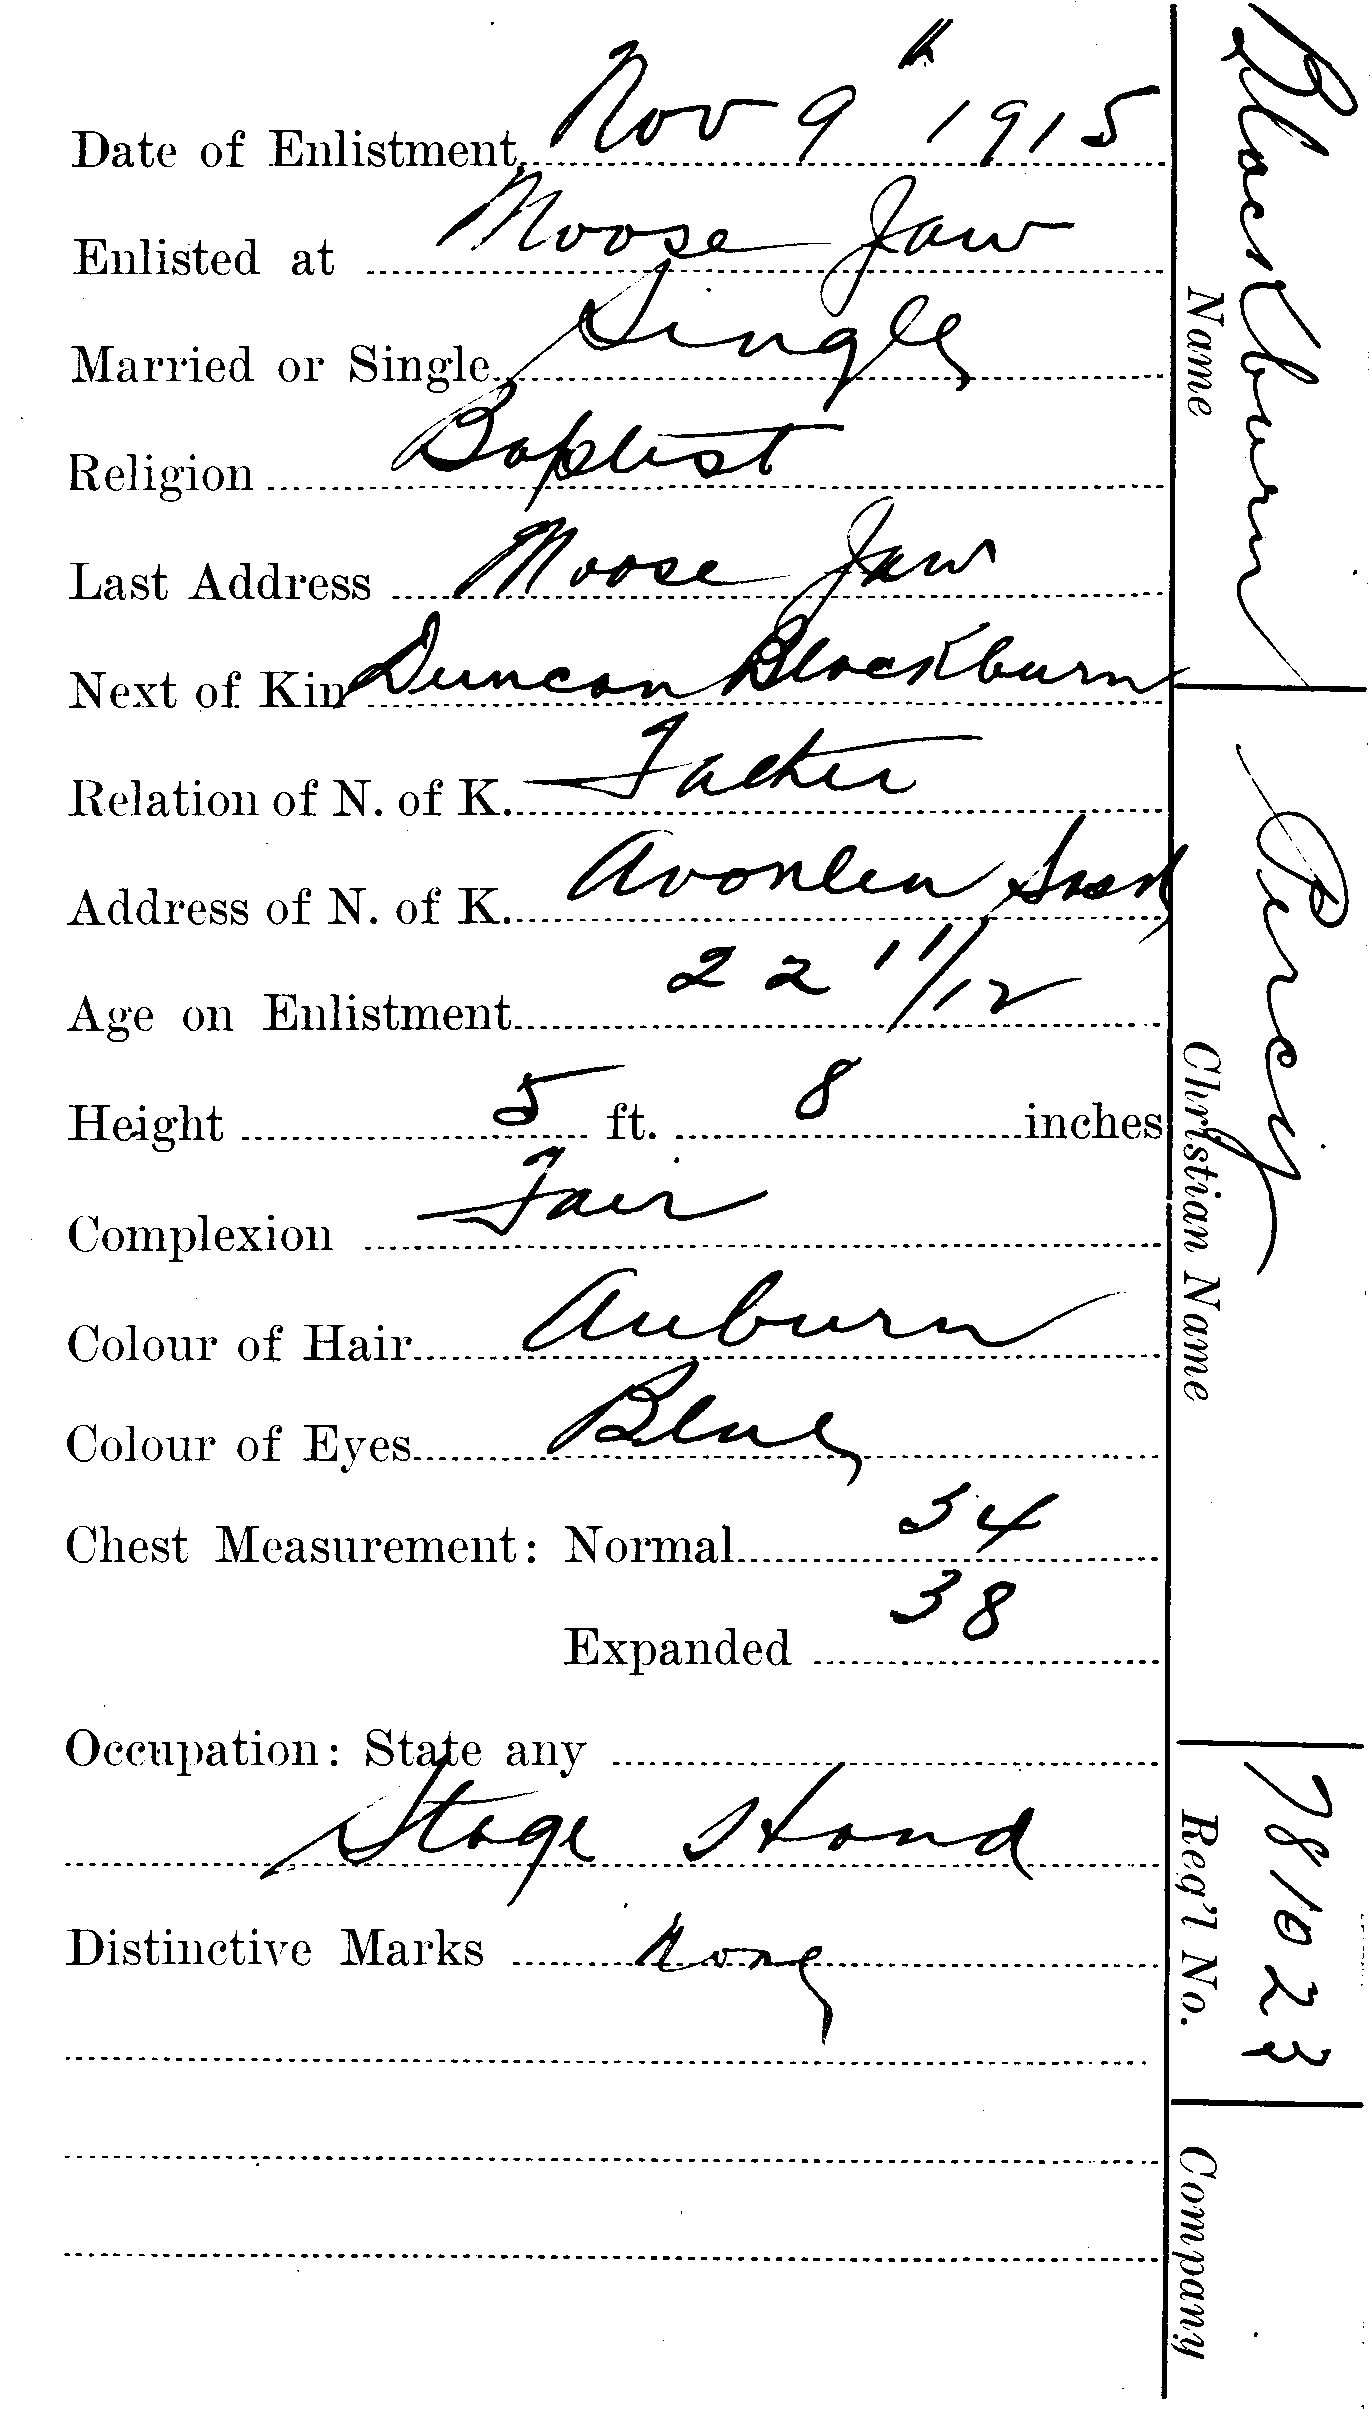 Date of Enlistment Nov 9th 1915
Enlisted at Moose Jaw
Married or Single Single
Religion Baptist
Last Address Moose Jaw
Next of Kin Duncan Blackburn
Relation of N. of K. Father
Address of N. of K. Avonlea Sask
Age on Enlistment 22 11/12
Height 5 ft. 8 inches
Complexion Fair
Colour of Hair Auburn
Colour of Eyes Blue
Chest Measurement: Normal 34
Expanded 38
Occupation: State any
Stage Hand
Distinctive Marks None
Blackburn
Name
Percy
Christian Name
781023
Reg'l No.
Company